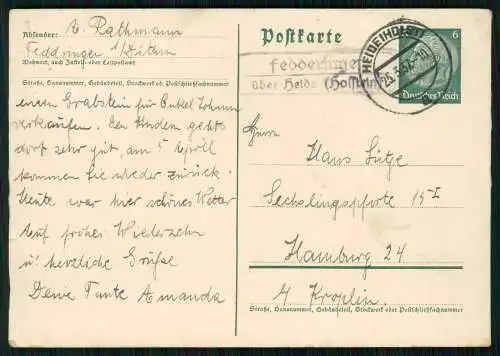 Absender: A. Rathmann
Feddringen /Dithm
Wohnort, auch Zustell- oder Leitpostamt
Straße, Hausnummer, Gebäudeteil, Stockwerk od. Postschließfachnummer
einen Grabstein für Onkel Johann
verkaufen. Den Kindern gehts
dort sehr gut, am 5 April
kommen Sie wieder zurück.
Heute war hier schönes Wetter
Auf frohes Wiedersehn
u. herzliche Grüße
Deine Tante Amanda
Postkarte
Fedderingen
über Heide (Holstein)
HEIDE (HOLST)
6
Deutsches Reich
Herrn
Hans Lütge
Sechslingspforte 15 I
Hamburg 24
b/ Kröplin.
Straße, Hausnummer, Gebäudeteil, Stockwerk oder Postschließfachnummer